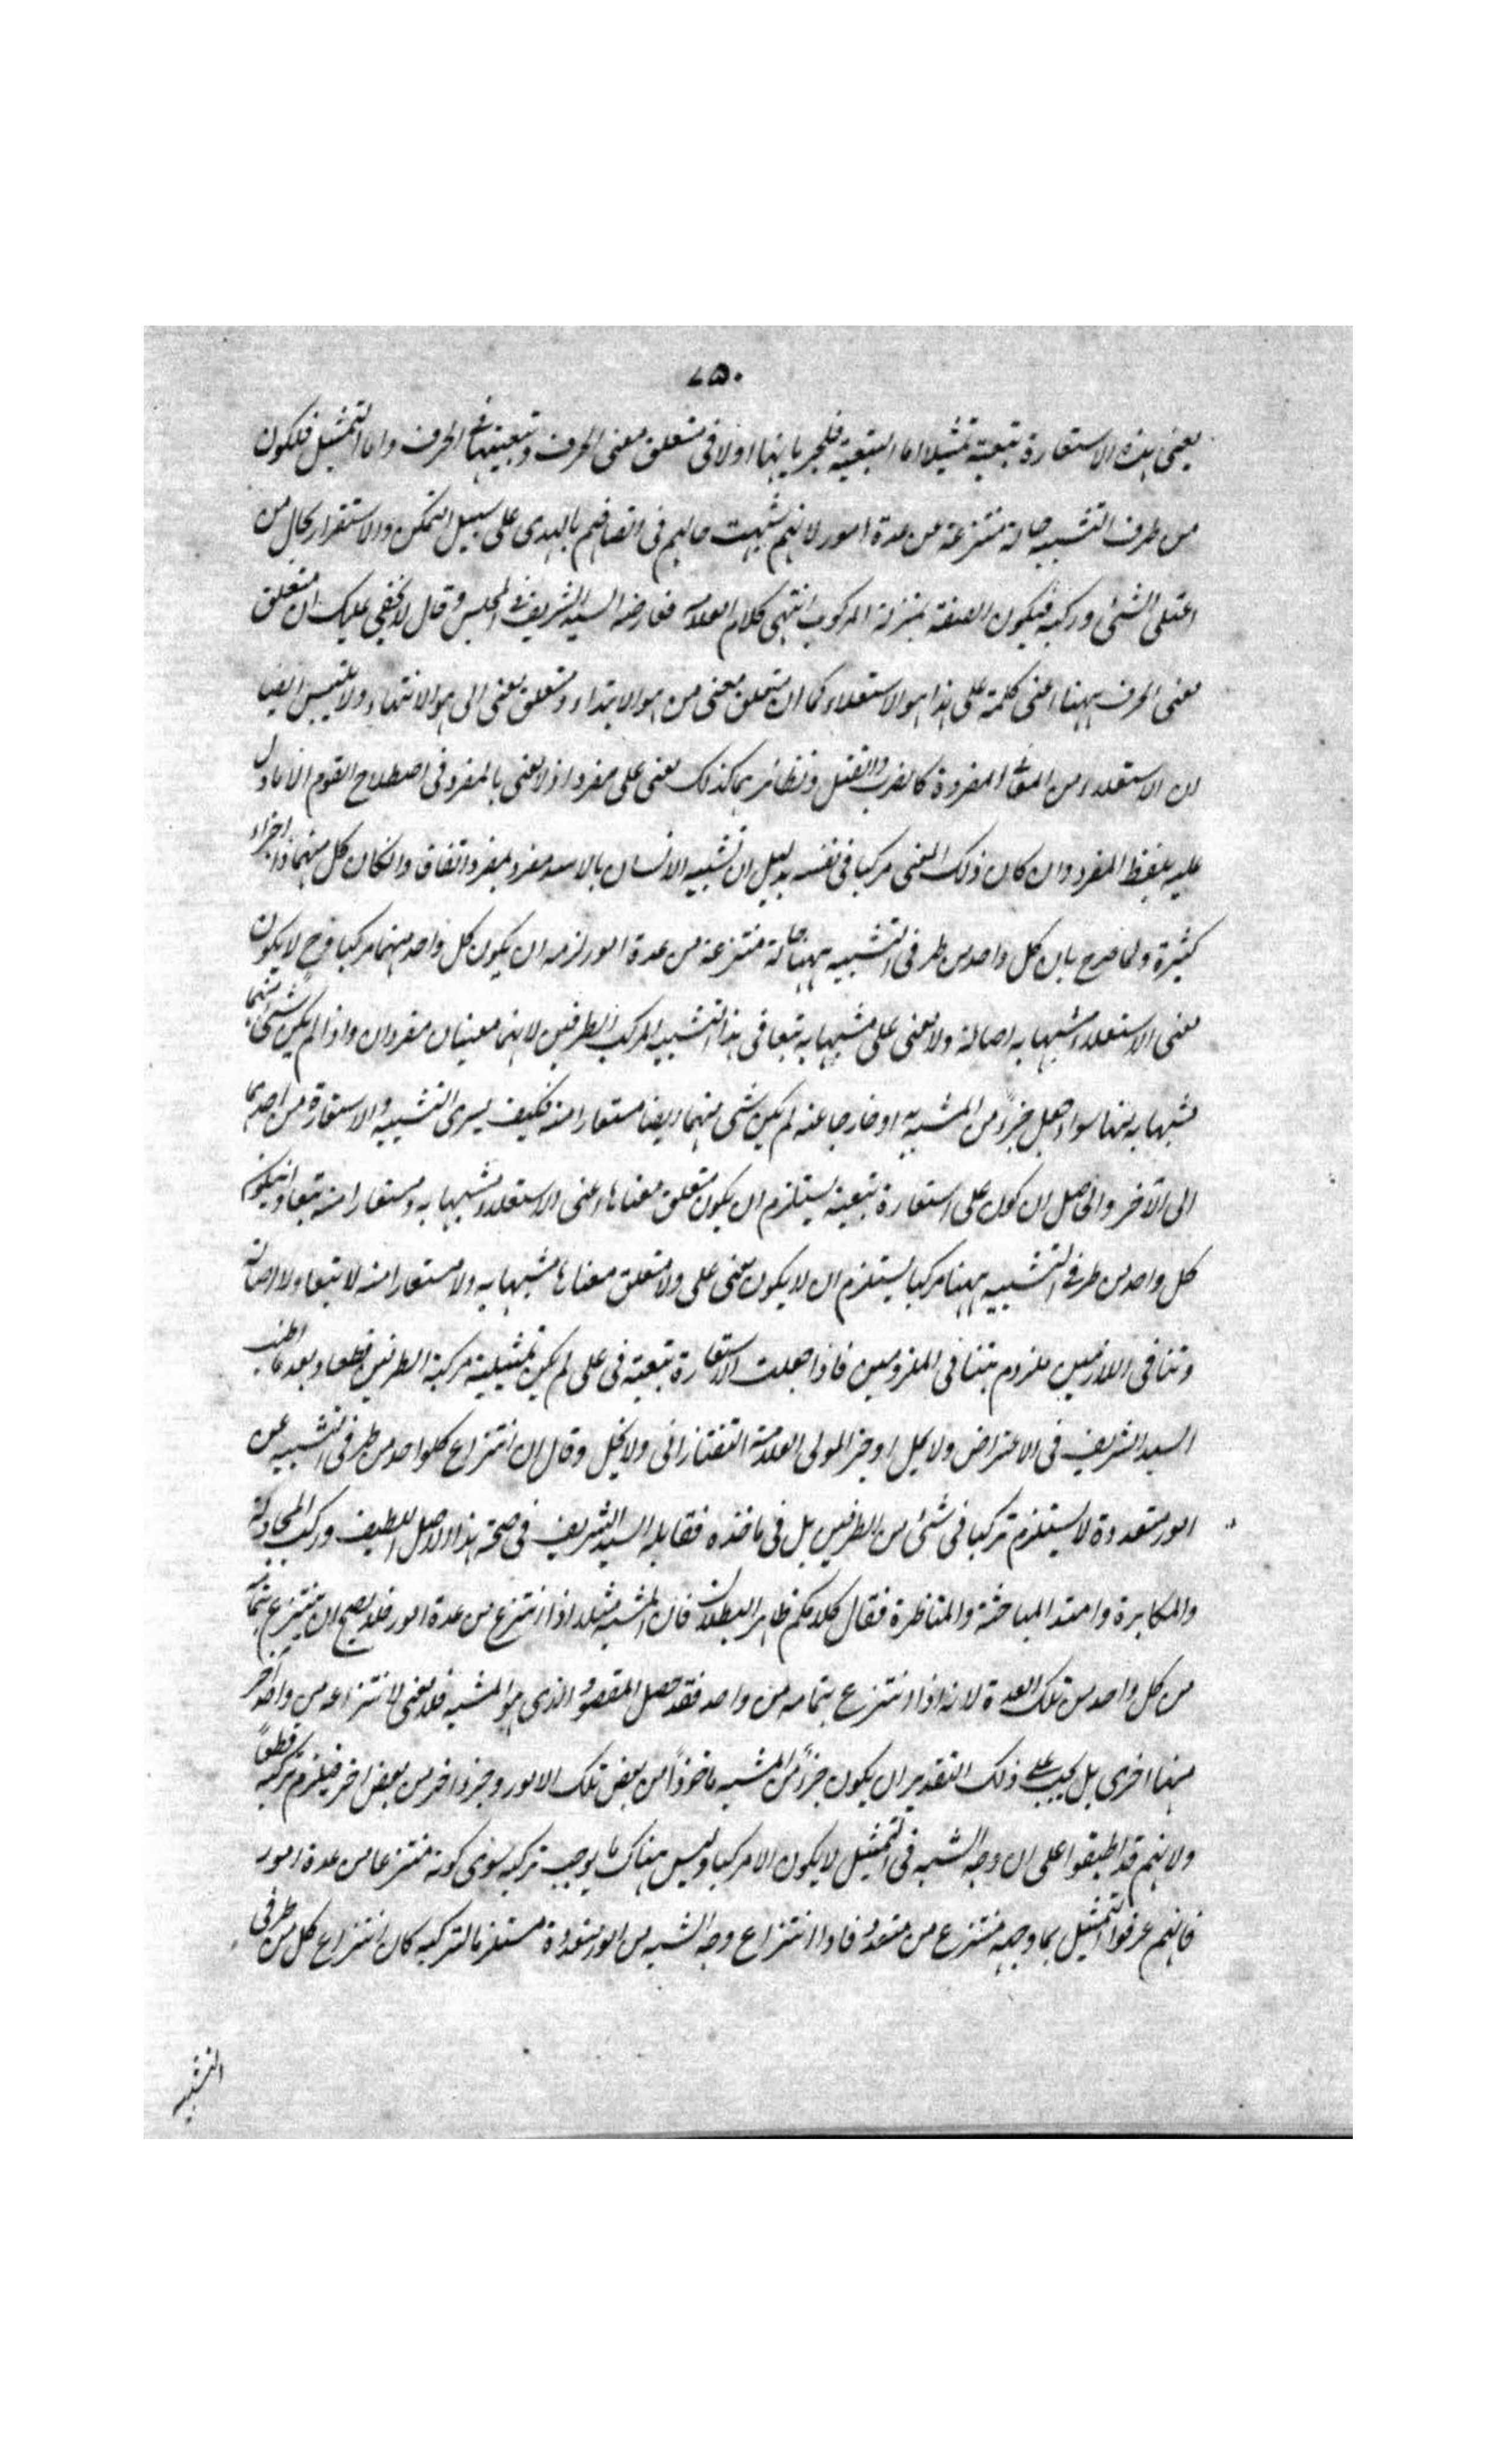 ٧٥٠
يعنى هذه الاستعارة تبعية تمثيلا اما التبعية فلجريانها اولا فى متعلق معنى الحرف وتبعيتها فى الحرف واما التمثيل فلكون
من طرف التشبيه حالة منتزعة من عدة امور لانهم شبهت حالهم فى اتصافهم بالهدى على سبيل التمكن والاستقرار بحال من
اعتلى الشئ وركبه فيكون الصفة بمنزلة المركوب انتهى كلام العلامه فعارضه السيد الشريف فى المجلس وقال لا يخفى عليك ان متعلق
معنى الحرف ههنا اعنى كلمة على هذا هو الاستعلاء كما ان متعلق معنى من هو الابتداء ومتعلق معنى الى هو الانتهاء ولا يلتبس ايضا
ان الاستعلاء من المعانى المفردة كالضرب والقتل ونظائرهما كذلك معنى على مفرد اذ لا يعنى بالمفرد فى اصطلاح القوم الا ما دل
عليه بلفظ المفرد وان كان ذلك المعنى مركبا فى نفسه بدليل ان تشبيه الانسان بالاسد مفرد بمفرد اتفاقا وان كان كل منهما ذا اجزاء
كثيرة ولما صرح بان كل واحد من طرفى التشبيه ههنا حالة منتزعة من عدة امور لزمه ان يكون كل واحد منهما مركبا وح لا يكون
معنى الاستعلاء مشبها به اصالة ولا معنى على مشبها به تبعا فى هذا التشبيه المركب الطرفين لانهما معنيان مفردان واذا لم يكن شئ منهما
مشبها به ههنا سواء جعل جزءً من المشبه به او خارجا عنه لم يكن شئ منهما ايضا مستعارا منه فكيف يسرى التشبيه والاستعارة من احدهما
الى الآخر والحاصل ان كون على استعارة تبعية يستلزم ان يكون متعلق معناها اعنى الاستعلاء مشبها به ومستعارا منه تبعا وان يكون
كل واحد من طرفى التشبيه ههنا مركبا يستلزم ان لا يكون معنى على ولا متعلق معناها مشبها به ولا مستعارا منه لا تبعا ولا اصالة
وتنافى اللازمين ملزوم بتنافى الملزومين فاذا جعلت الاستعارة تبعية فى على لم يكن تمثيلية مركبة الطرفين قطعا وبعد ما اطنب
السيد الشريف فى الاعتراض ولا يمل اوجز المولى العلامة التفتازانى ولا يخل وقال ان انتزاع كل واحد من طرفى التشبيه من
امور متعددة لا يستلزم تركبا فى شئ من الطرفين بل فى ماخذه فقابله السيد الشريف فى صحة هذا الاصل اللطيف وركب المجادلة
والمكابرة وامتد المباحثة والمناظرة فقال كلامكم ظاهر البطلان فان المشبه مثلا اذا انتزع من عدة امور فلا يصح ان ينتزع بتمامه
من كل واحد من تلك العدة لانه اذا انتزع بتمامه من واحد فقد حصل المقصود الذى هو المشبه فلا معنى لانتزاعه من واحد آخر
منها اخرى بل يجب على ذلك التقدير ان يكون جزءً من المشبه ماخوذاً من بعض تلك الامور وجزء اخر من بعض اخر فيلزم تركبه قطعاً
ولانهم قد اطبقوا على ان وجه الشبه فى التمثيل لا يكون الا مركبا وليس هناك ما يوجب تركبه سوى كونه منتزعا من عدة امور
فانهم عرفوا التمثيل بما وجهه منتزع من متعدد فاذا انتزاع وجه الشبه من امور متعددة مستلزما لتركبه كان انتزاع كل من طرفى
التشبيه